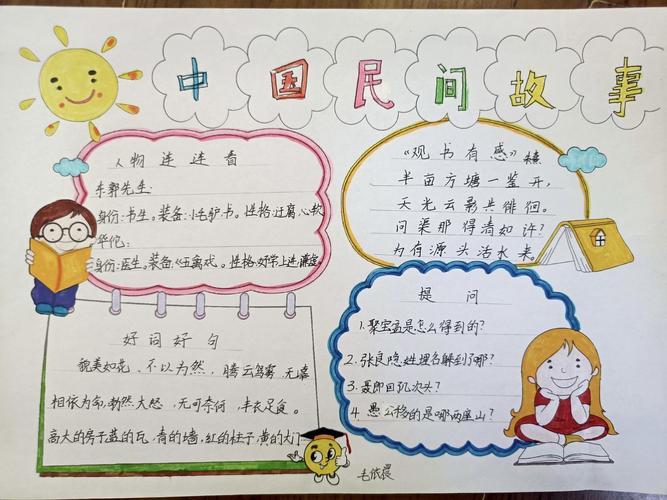 中国民间故事
人物连连看
东郭先生:
身份:书生。装备:小毛驴、书。性格:迂腐、心软
华佗:
身份:医生。装备:《五禽戏。性格:好学上进、谦虚。
《观书有感》朱熹
半亩方塘一鉴开,
天光云影共徘徊。
问渠那得清如许?
为有源头活水来。
好词好句
貌美如花、不以为然,腾云驾雾、无
相依为命、勃然大怒、无可奈何、丰衣足食。
高大的房子蓝的瓦、青的墙、红的柱子、黄的大门
提问
1.聚宝盆是怎么得到的?
2.张良隐姓埋名躲到了哪?
3.聂郎回几次头?
4.愚公移的是哪两座山?
毛依晨